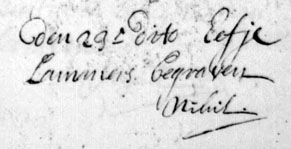 den 29e dito Eefje
Lammers begraven
Nihil.